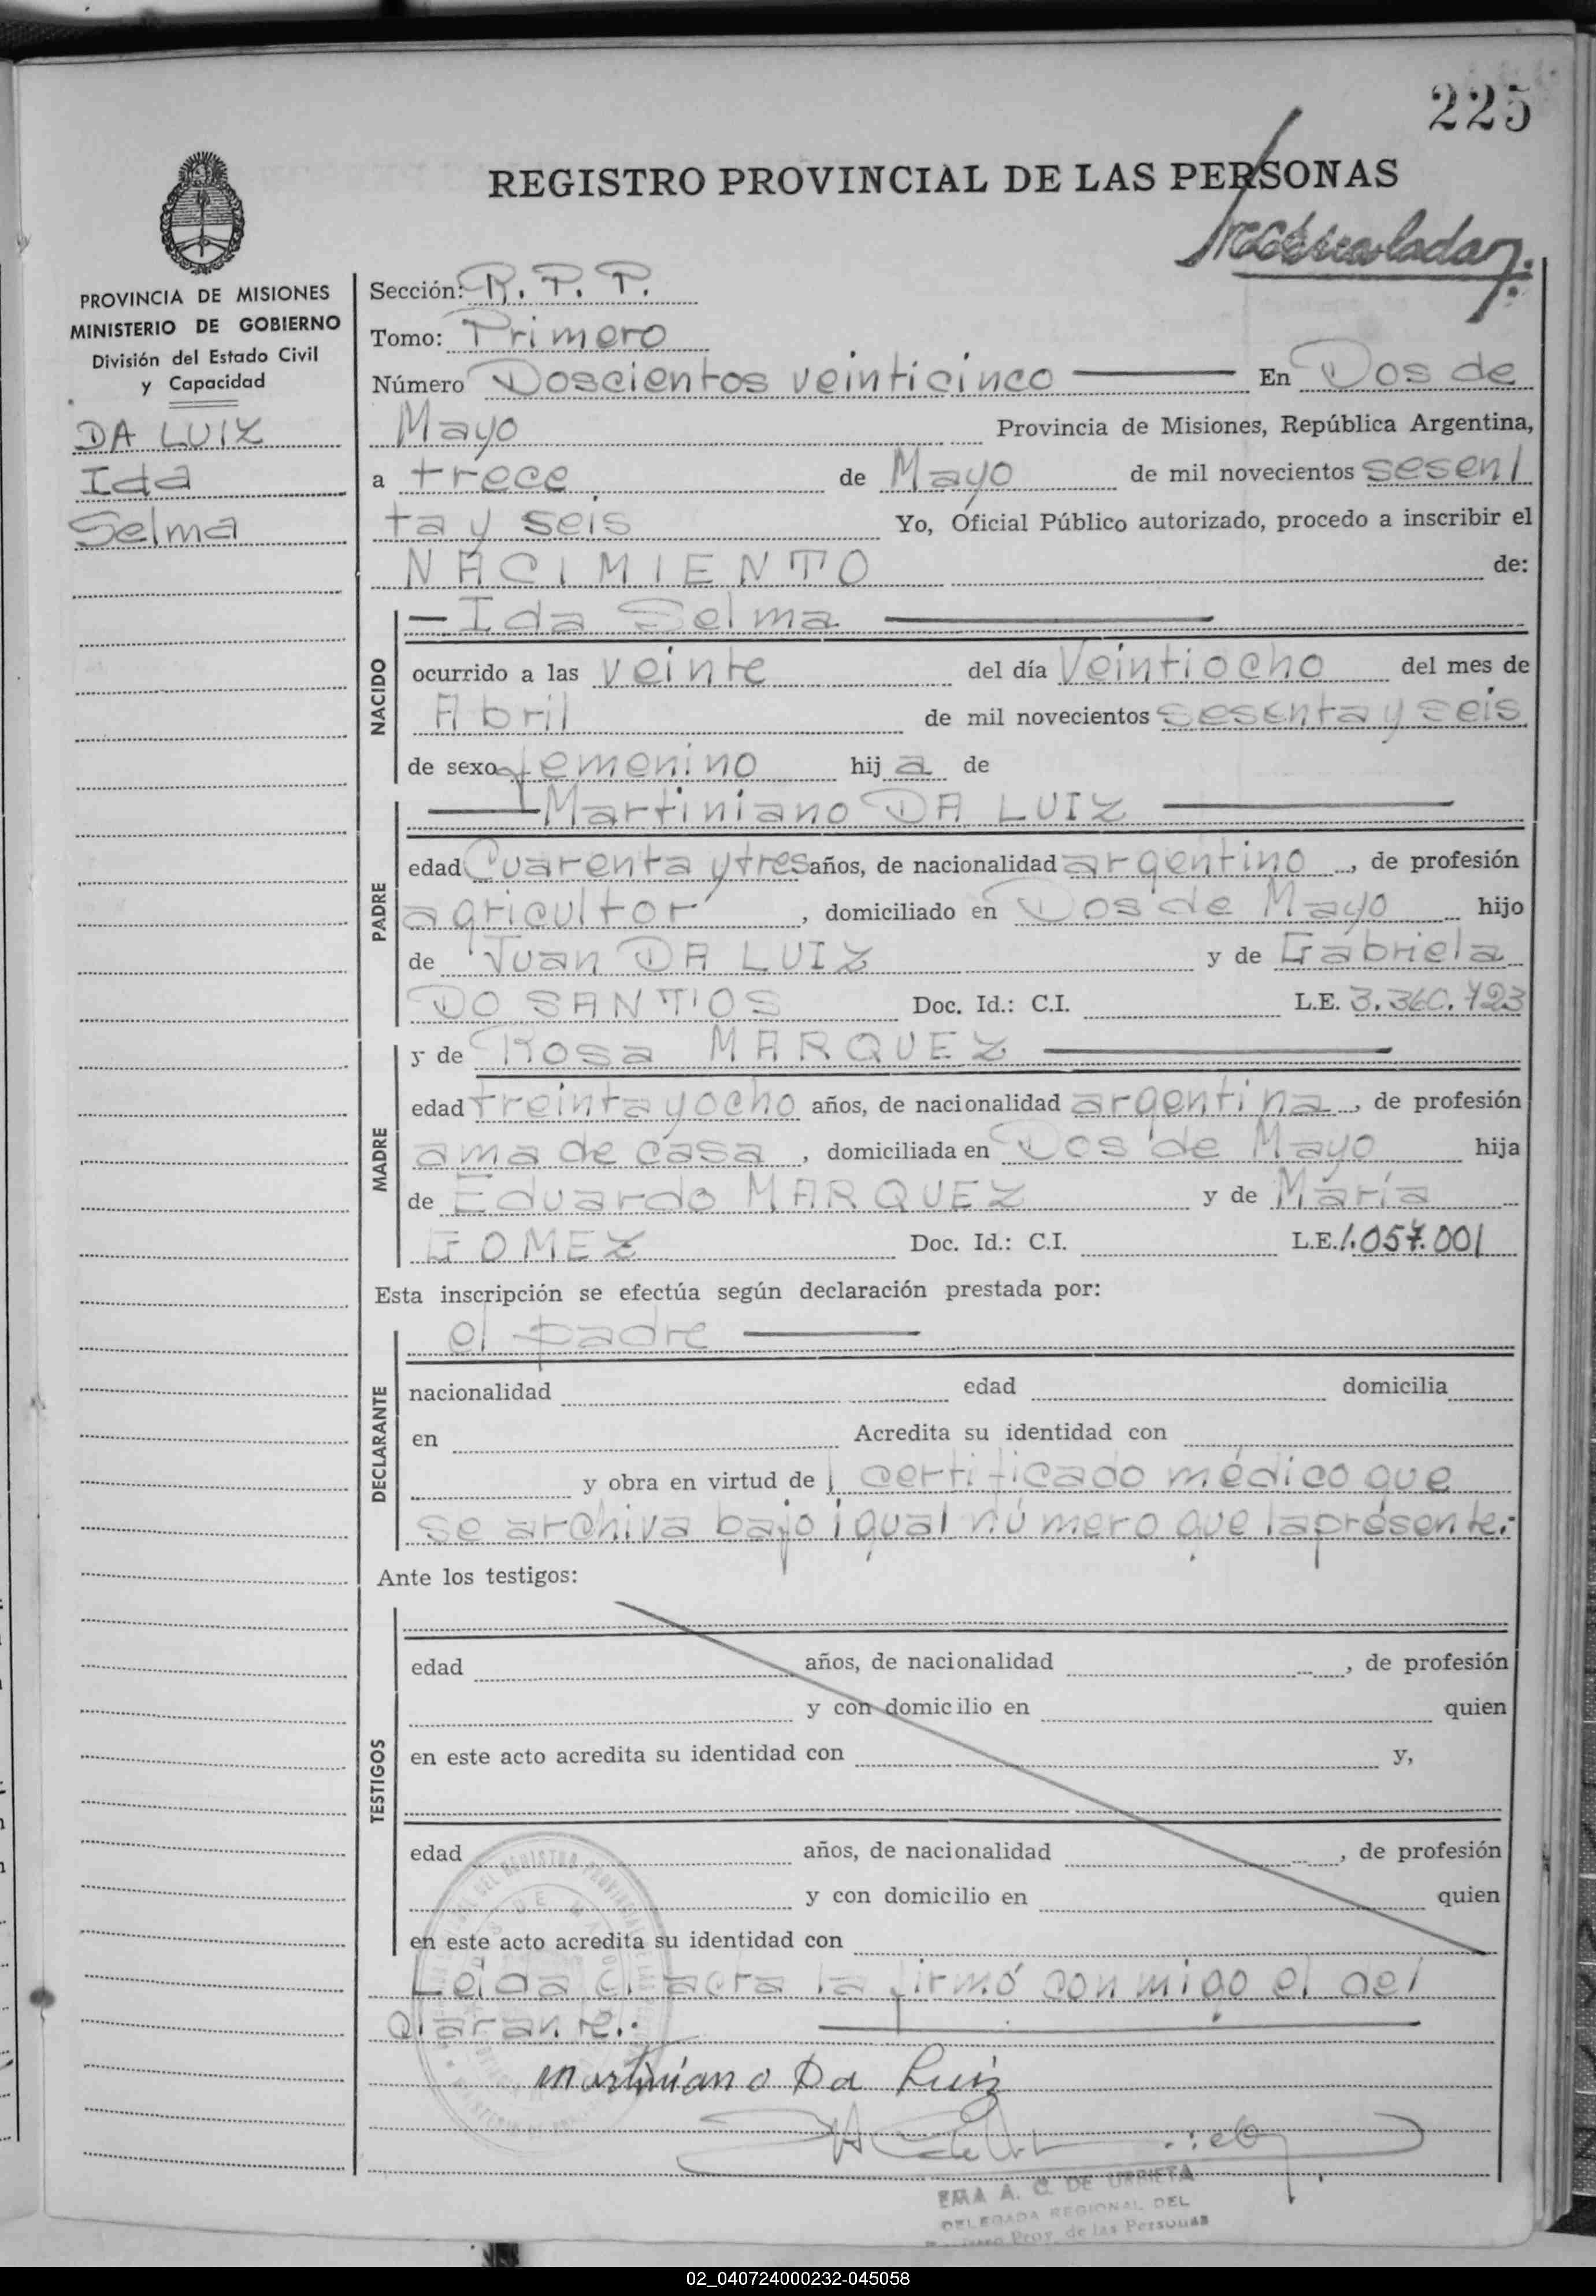 225
REGISTRO PROVINCIAL DE LAS PERSONAS
PROVINCIA DE MISIONES
MINISTERIO DE GOBIERNO
División del Estado Civil
y Capacidad
DA LUIZ
Ida
Selma
Sección: R. P. P.
Tomo: Primero
Número Doscientos veinticinco En Dos de
Mayo Provincia de Misiones, República Argentina,
a trece de Mayo de mil novecientos sesen
ta y seis Yo, Oficial Público autorizado, procedo a inscribir el
NACIMIENTO de:
NACIDO
Ida Selma
ocurrido a las veinte del día Veintiocho del mes de
Abril de mil novecientos sesenta y seis
de sexo femenino hija de
PADRE
Martiniano DA LUIZ
edad Cuarenta y tres años, de nacionalidad argentino, de profesión
agricultor, domiciliado en Dos de Mayo hijo
de Juan DA LUIZ y de Gabriela
DO SANTOS Doc. Id.: C.I. L.E. 3.360.723
MADRE
y de Rosa MARQUEZ
edad treinta y ocho años, de nacionalidad argentina, de profesión
ama de casa, domiciliada en Dos de Mayo hija
de Eduardo MARQUEZ y de María
GOMEZ Doc. Id.: C.I. L.E. 1.057.001
Esta inscripción se efectúa según declaración prestada por:
DECLARANTE
el padre
nacionalidad edad domicilia
en Acredita su identidad con
y obra en virtud de certificado médico que
se archiva bajo igual número que la présente.-
Ante los testigos:
TESTIGOS
edad años, de nacionalidad , de profesión
y con domicilio en quien
en este acto acredita su identidad con y,
edad años, de nacionalidad , de profesión
y con domicilio en quien
en este acto acredita su identidad con
Leida el acta la firmó conmigo el del
clarante.-
martiniano Da Luiz
EMA A. C. DE URRIETA
DELEGADA REGIONAL DEL
Prov. de las Personas
02_040724000232-045058